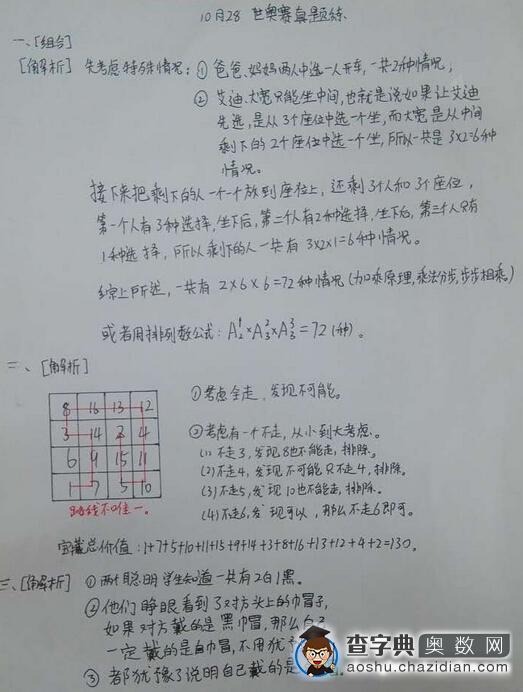 10月28 世奥赛真题练
一、[组合]
[解析] 先考虑特殊情况：① 爸爸、妈妈两人中选一人开车，一共2种情况，
② 艾迪、大宽只能坐中间，也就是说如果让艾迪
先选，是从3个座位中选一个坐，而大宽是从中间
剩下的2个座位中选一个坐，所以一共是3×2=6种
情况。
接下来把剩下的人一个一个放到座位上，还剩3个人和3个座位，
第一个人有3种选择，坐下后，第二个人有2种选择，坐下后，第三个人只有
1种选择，所以剩下的人一共有3×2×1=6种情况。
综上所述，一共有 2×6×6=72种情况（加乘原理，乘法分步，步步相乘。）
或者用排列数公式：A₂¹×A₃²×A₃³=72（种）。
二、[解析]
8 16 13 12
3 14 2 4
6 9 15 11
1 7 5 10
路线不唯一。
①考虑全走，发现不可能。
②考虑有一个不走，从小到大考虑。
(1)不走3，发现8也不能走，排除。
(2)不走4，发现不可能只不走4，排除。
(3)不走5，发现10也不能走，排除。
(4)不走6，发现可以，那么不走6即可。
宝藏总价值：1+7+5+10+11+15+9+14+3+8+16+13+12+4+2=130。
三、[解析] ①两个聪明学生知道一共有2白1黑。
②他们睁眼看到了对方头上的帽子，
如果对方戴的是黑帽，那么自己
一定戴的是白帽，不用犹
③ 都犹豫了说明自己戴的是
查字典奥数网
aoshu.chazidian.com